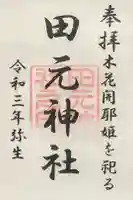 奉拝 木花開耶姫を祀る
田元神社
令和三年弥生